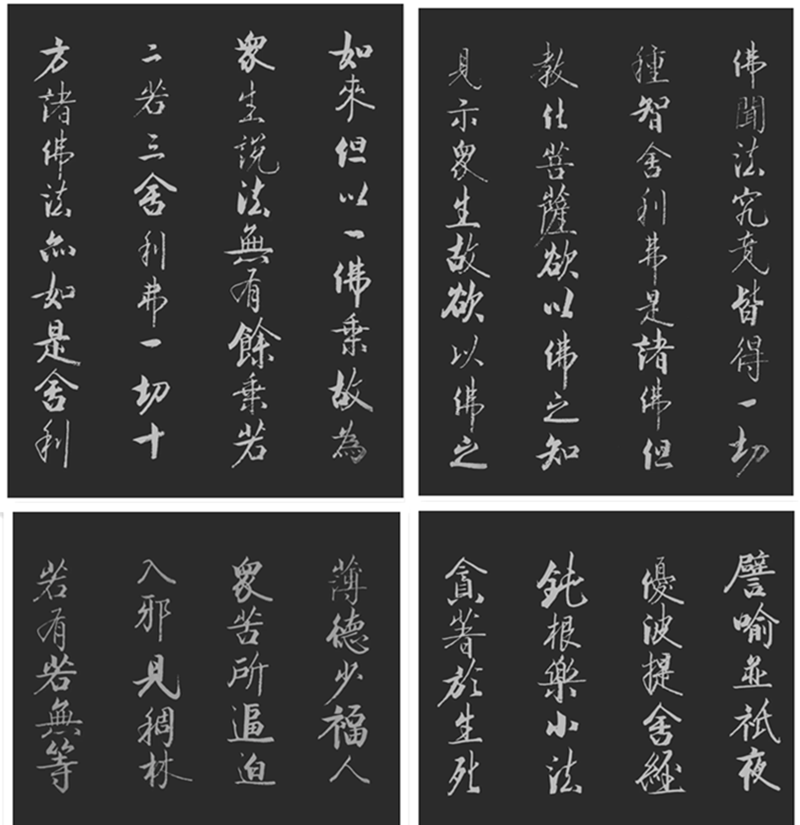 佛聞法究竟皆得一切
種智舍利弗是諸佛但
教化菩薩欲以佛之知
見示眾生故欲以佛之
如來但以一佛乘故為
眾生說法無有餘乘若
二若三舍利弗一切十
方諸佛法亦如是舍利
譬喻並祇夜
優波提舍經
鈍根樂小法
貪著於生死
薄德少福人
眾苦所逼迫
入邪見稠林
若有若無等